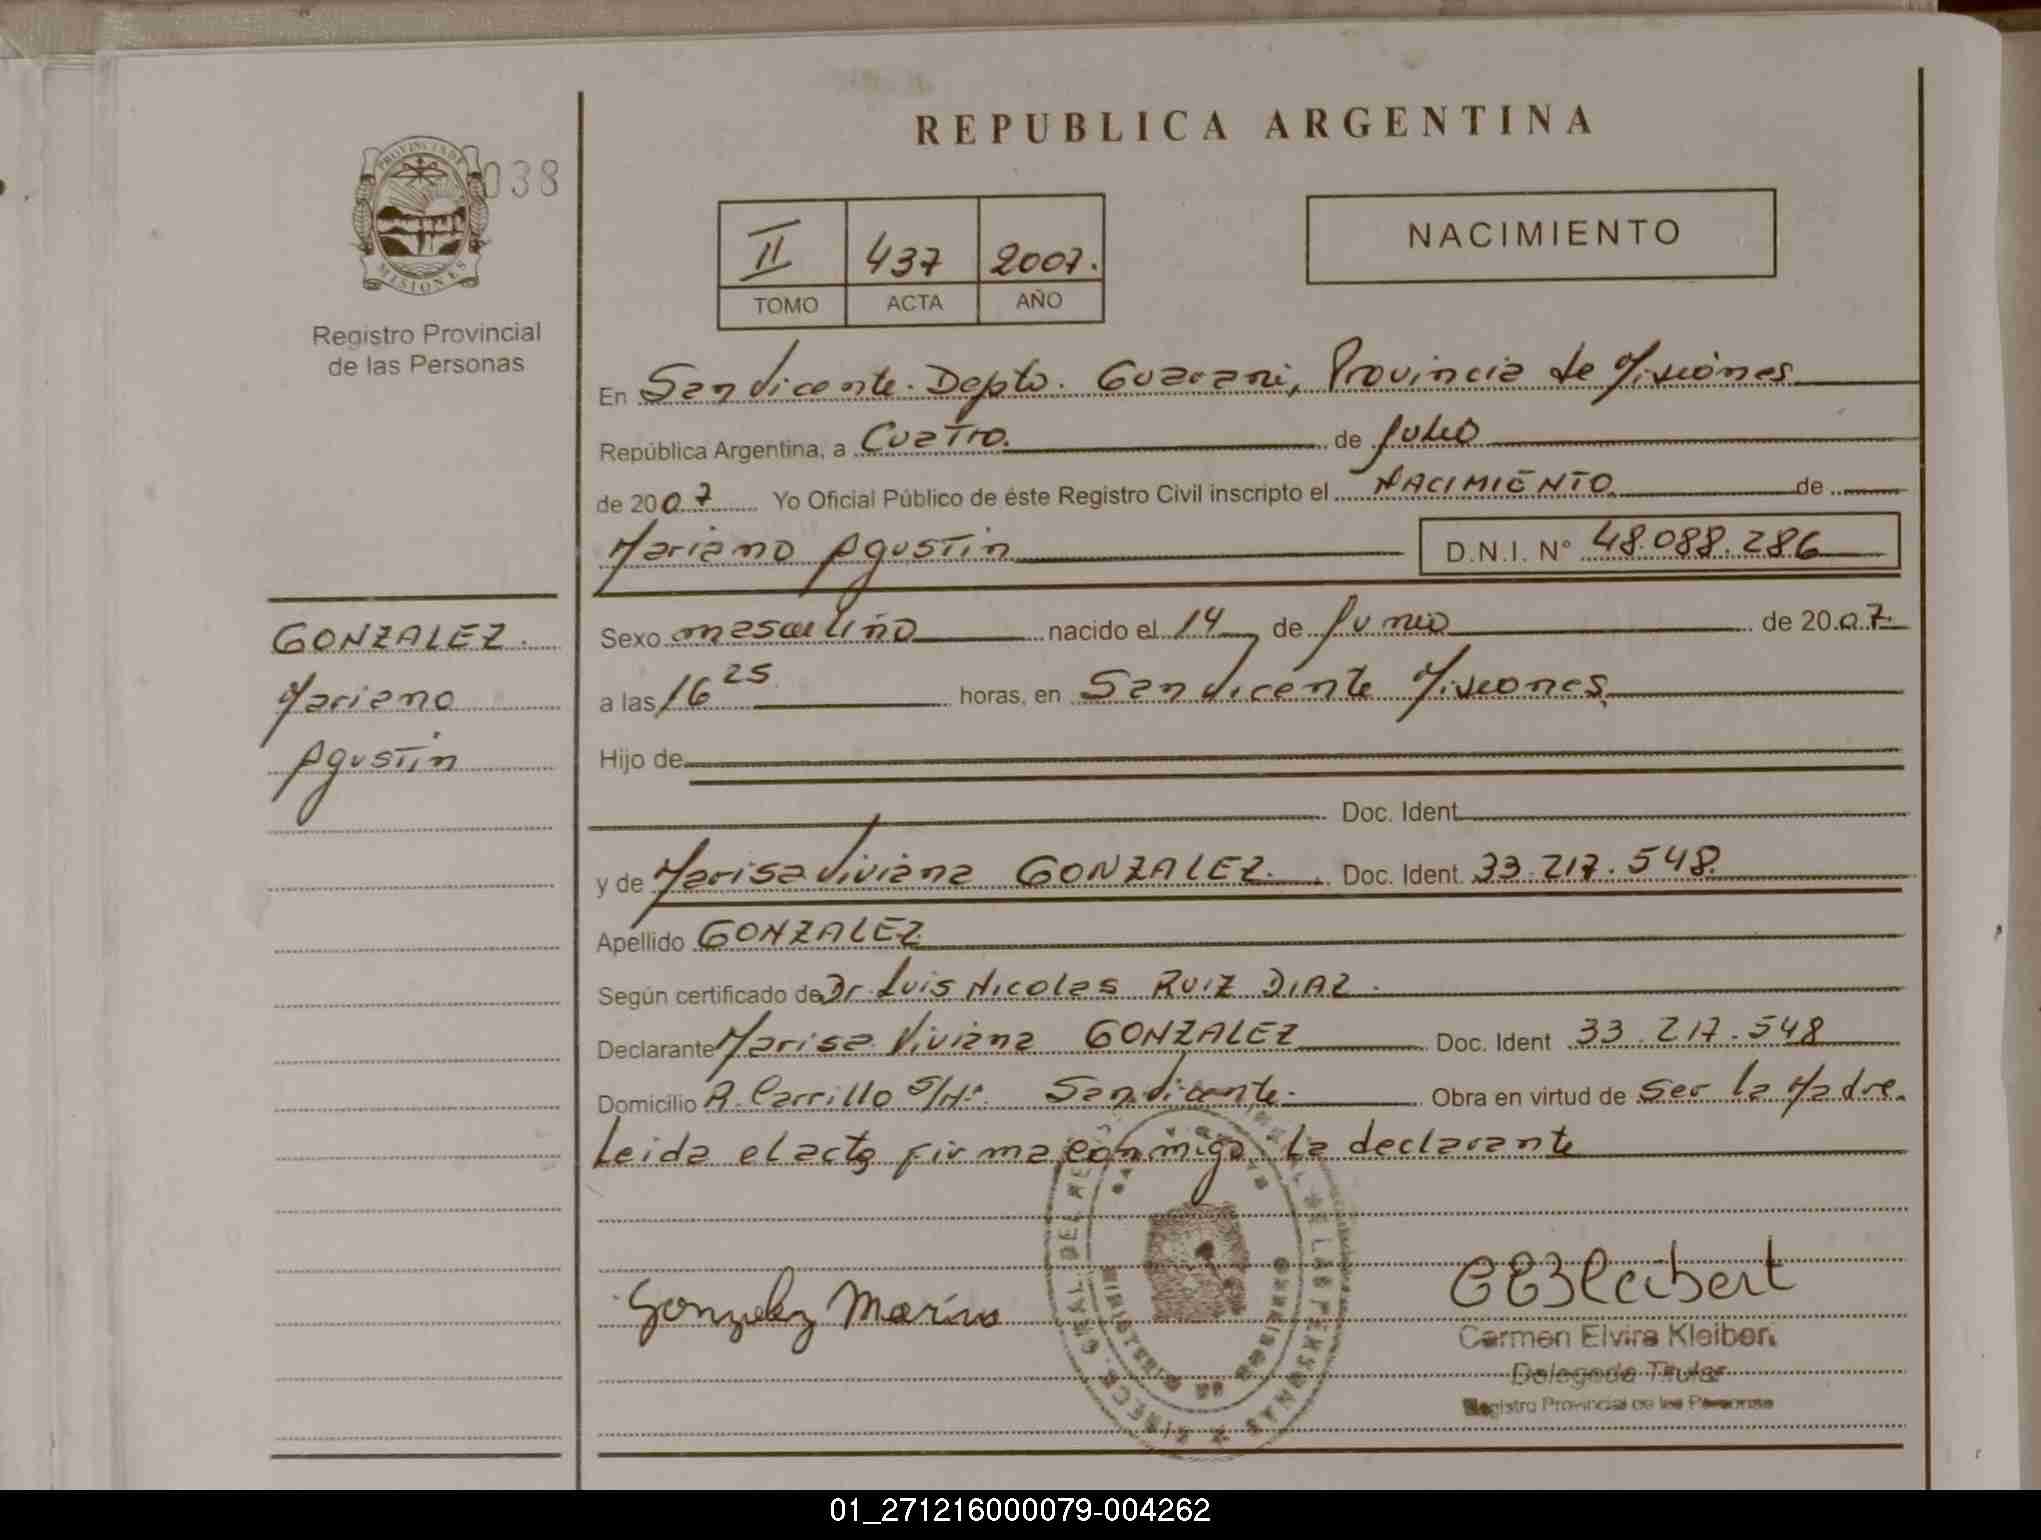 REPUBLICA ARGENTINA
PROVINCIA DE
MISIONES
038
Registro Provincial
de las Personas
II 437 2007.
TOMO ACTA AÑO
NACIMIENTO
En San Vicente. Depto. Guarani, Provincia de Misiones
República Argentina, a Cuatro. de Julio
de 2007 Yo Oficial Público de éste Registro Civil inscripto el NACIMIENTO de
Mariano Agustin D.N.I. N° 48.088.286
GONZALEZ.
Mariano
Agustin
Sexo masculino nacido el 14 de Junio de 2007.
a las 16 25 horas, en San Vicente Misiones
Hijo de
Doc. Ident
y de Marisa Viviana GONZALEZ. Doc. Ident. 33.217.548.
Apellido GONZALEZ
Según certificado de Dr. Luis Nicolas RUIZ DIAZ.
Declarante Marisa Viviana GONZALEZ Doc. Ident 33.217.548
Domicilio A. Carrillo S/N°. San Vicente. Obra en virtud de ser la Madre.
Leida el acta firma conmigo la declarante
Gonzalez Marisa
CEKleibert
Carmen Elvira Kleibert
Delegada Titular
Registro Provincial de las Personas
01_271216000079-004262